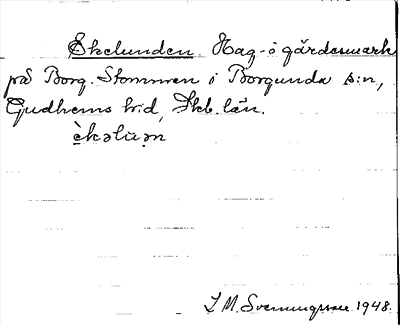 Ekelunden. Hag- o gärdesmark
på Borg. Stommen i Borgunda s:n,
Gudhems hd, Skb. län.
èkəlùn̥
I. M. Svenningsson 1948.